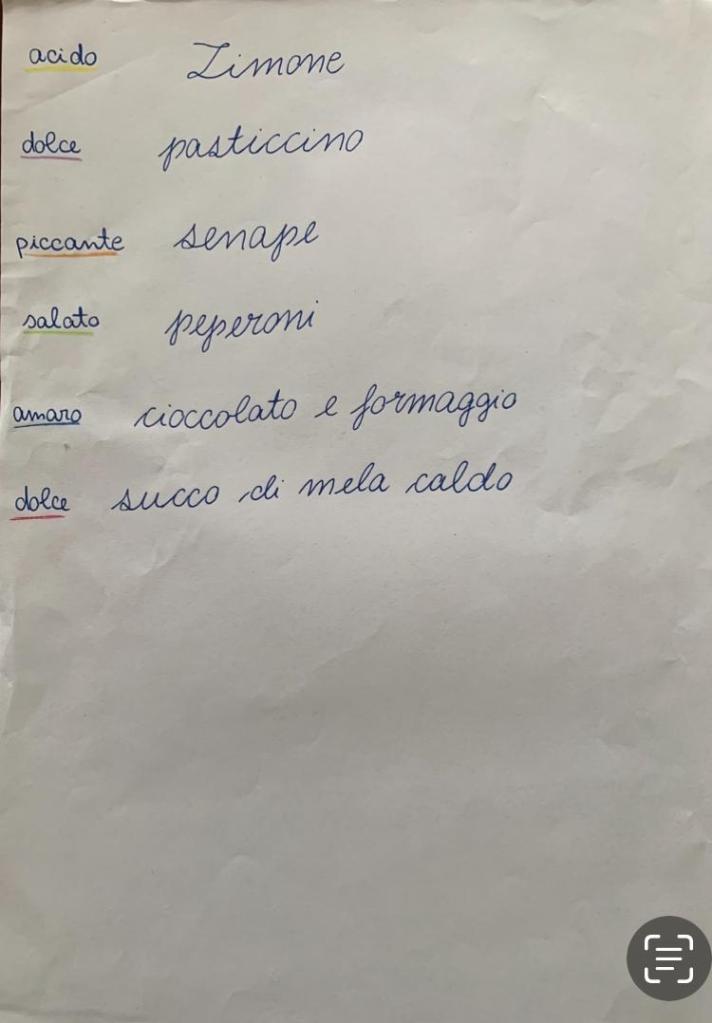 acido Limone
dolce pasticcino
piccante senape
salato peperoni
amaro cioccolato e formaggio
dolce succo di mela caldo